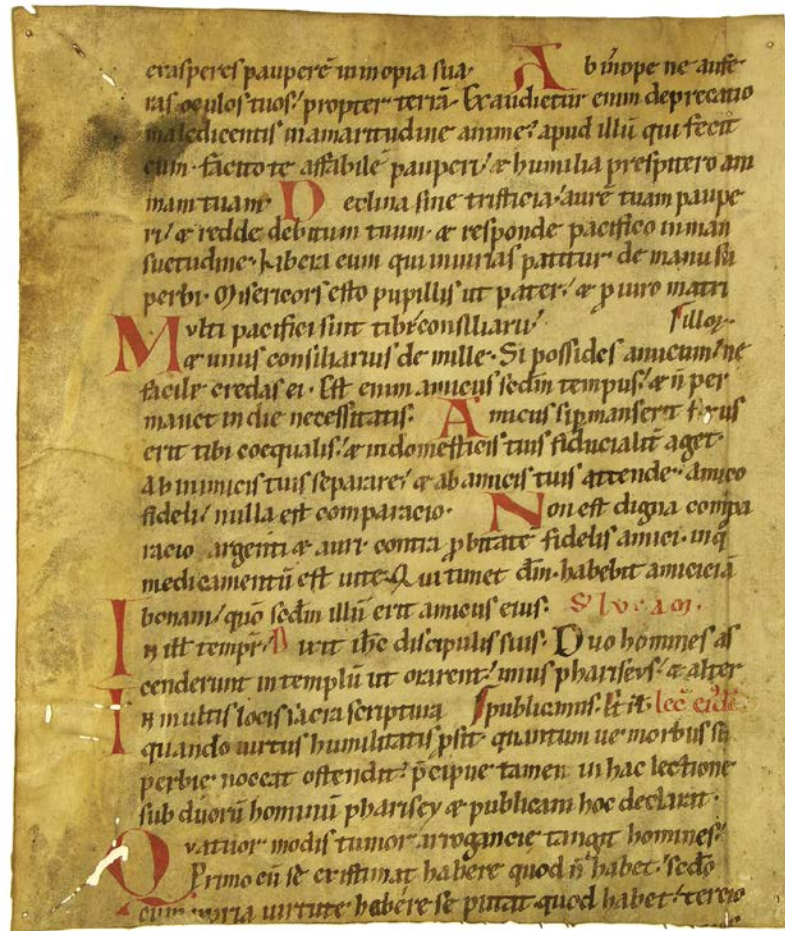 exasperes pauperē in inopia sua· Ab inope ne aufe
ras oculos tuos/ propter terrā· Exaudietur enim deprecatio
maledicentis in amaritudine anime/ apud illū qui fecit
eum· facito te affabilē pauperi/ & humilia prespitero ani
mam tuam· Declina sine tristicia/ aurē tuam paupe
ri/ & redde debitum tuum· & responde pacifico in man
suetudine· Libera eum qui iniurias patitur de manu su
perbi· Misericors esto pupillis ut pater/ & ꝓ uiro matri
Multi pacifici sint tibi/ consiliarii/ illoꝝ·
& unus consiliarius de mille· Si possides amicum/ ne
facile credas ei· Est enim amicus scdm tempus/ & n̄ per
manet in die necessitatis· Amicus si ꝑmanserit fixus
erit tibi coequalis/ & in domesticis tuis fiducialit̄ aget·
Ab inimicis tuis separare/ & ab amicis tuis attende· amico
fideli/ nulla est comparacio· Non est digna compa
racio argenti & auri contra ꝓbitatē fidelis amici· inq̄
medicamentū est uite· Qui timet dm̄· habebit amiciciā
bonam/ quō scdm illū erit amicus eius· S lvcam·
In ill̄ tempr̄/ Dixit ihc discipulis suis· Duo homines as
cenderunt in templū ut orarent/ unus phariseus/ & alter
In multis locis sacra scriptura publicanus· Et rł· lec̄ eiꝰdē
quando uirtus humilitatis ꝓsit· quantum ue morbus su
perbie noceat ostendit/ p̄cipue tamen in hac lectione
sub duorū hominū pharisey & publicani hoc declarat·
Qvatuor modis tumor arrogancie tangit homines/
Primo cū se existimat habere quod n̄ habet· scdo
cum uirtute habere se putat quod habet/ tercio